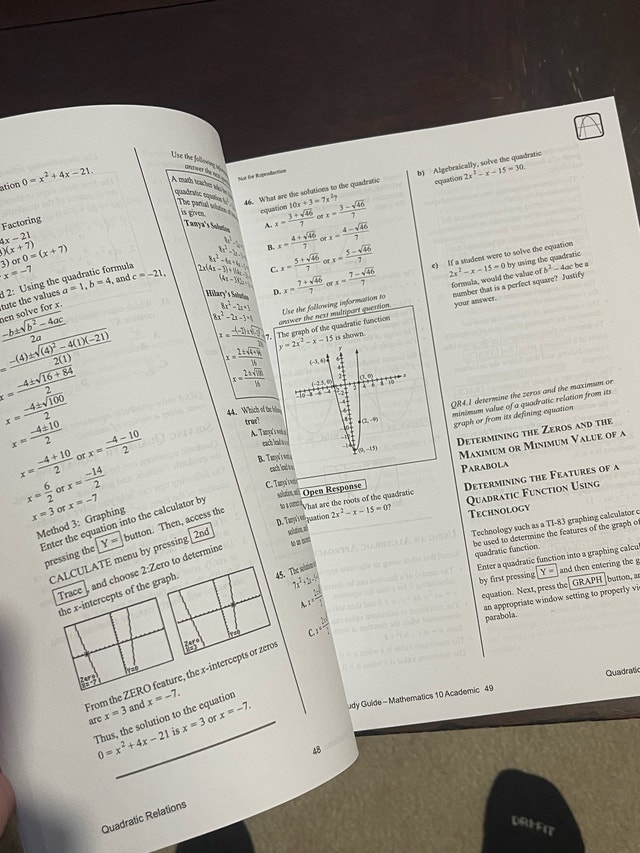 ation 0 = x² + 4x − 21.
Factoring
4x − 21
)(x + 7)
3) or 0 = (x + 7)
x = −7
d 2: Using the quadratic formula
tute the values a = 1, b = 4, and c = −21,
hen solve for x.
−b±√b² − 4ac
2a
−(4)±√(4)² − 4(1)(−21)
2(1)
x = −4±√16 + 84
2
x = −4±√100
2
x = −4±10
2
x = −4 + 10 / 2 or x = −4 − 10 / 2
x = 6/2 or x = −14/2
x = 3 or x = −7
Method 3: Graphing
Enter the equation into the calculator by
pressing the Y = button. Then, access the
CALCULATE menu by pressing 2nd
Trace, and choose 2:Zero to determine
the x-intercepts of the graph.
Zero
X=-7 Y=0
Zero
X=3 Y=0
From the ZERO feature, the x-intercepts or zeros
are x = 3 and x = −7.
Thus, the solution to the equation
0 = x² + 4x − 21 is x = 3 or x = −7.
48
Quadratic Relations
Use the following
answer the next
A math teacher
quadratic equation
The partial solution
is given.
Tanya's Solution
Hilary's Solution
8x² − 2x = 1
8x² − 2x − 1 =
x = 2±√4+
16
x = 2±√
16
44. Which of the
true?
A. Tanya's
B. Tanya's
C. Tanya's
D. Tanya's
45. The solution
A. x =
C. x =
Not for Reproduction
46. What are the solutions to the quadratic
equation 10x + 3 = 7x²?
A. x = 3 + √46 / 7 or x = 3 − √46 / 7
B. x = 4 + √46 / 7 or x = 4 − √46 / 7
C. x = 5 + √46 / 7 or x = 5 − √46 / 7
D. x = 7 + √46 / 7 or x = 7 − √46 / 7
Use the following information to
answer the next multipart question.
7. The graph of the quadratic function
y = 2x² − x − 15 is shown.
(−3, 6)
(−2.5, 0)
(3, 0)
(2, −9)
(0, −15)
Open Response
What are the roots of the quadratic
equation 2x² − x − 15 = 0?
udy Guide – Mathematics 10 Academic 49
b) Algebraically, solve the quadratic
equation 2x² − x − 15 = 30.
c) If a student were to solve the equation
2x² − x − 15 = 0 by using the quadratic
formula, would the value of b² − 4ac be a
number that is a perfect square? Justify
your answer.
QR4.1 determine the zeros and the maximum or
minimum value of a quadratic relation from its
graph or from its defining equation
DETERMINING THE ZEROS AND THE
MAXIMUM OR MINIMUM VALUE OF A
PARABOLA
DETERMINING THE FEATURES OF A
QUADRATIC FUNCTION USING
TECHNOLOGY
Technology such as a TI-83 graphing calculator c
be used to determine the features of the graph of
quadratic function.
Enter a quadratic function into a graphing calcu
by first pressing Y = and then entering the
equation. Next, press the GRAPH button, a
an appropriate window setting to properly vi
parabola.
Quadratic
DRI-FIT